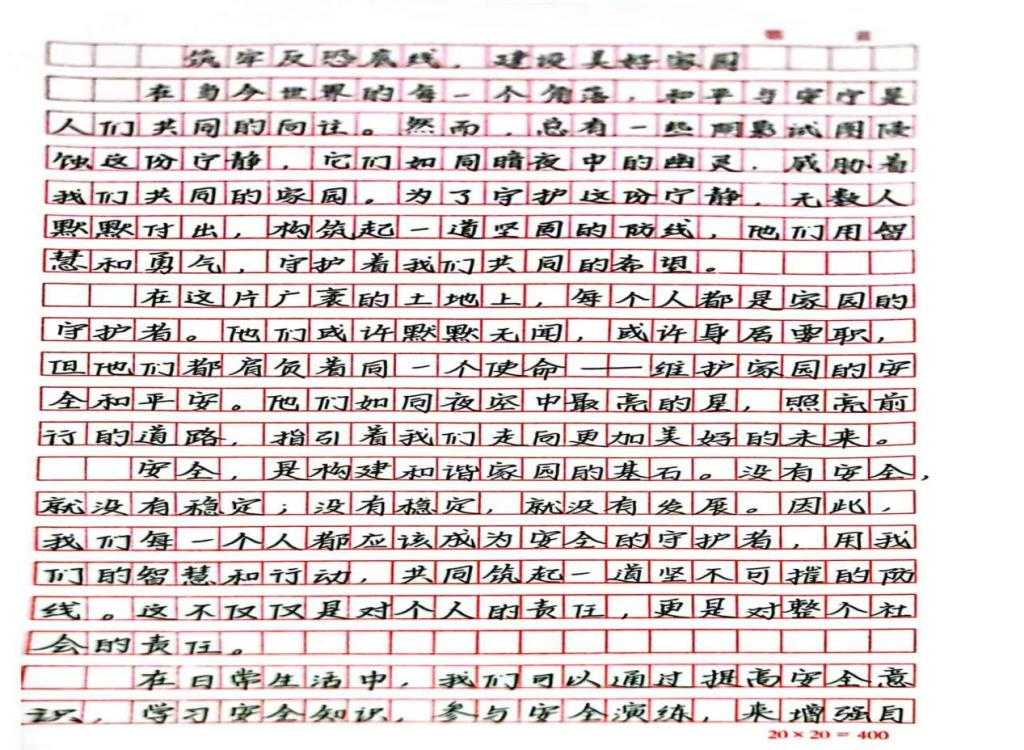 筑牢反恐底线，建设美好家园
在当今世界的每一个角落，和平与安宁是
人们共同的向往。然而，总有一些阴影试图侵
蚀这份宁静，它们如同暗夜中的幽灵，威胁着
我们共同的家园。为了守护这份宁静，无数人
默默付出，构筑起一道坚固的防线，他们用智
慧和勇气，守护着我们共同的希望。
在这片广袤的土地上，每个人都是家园的
守护者。他们或许默默无闻，或许身居要职，
但他们都肩负着同一个使命——维护家园的安
全和平安。他们如同夜空中最亮的星，照亮前
行的道路，指引着我们走向更加美好的未来。
安全，是构建和谐家园的基石。没有安全，
就没有稳定；没有稳定，就没有发展。因此，
我们每一个人都应该成为安全的守护者，用我
们的智慧和行动，共同筑起一道坚不可摧的防
线。这不仅仅是对个人的责任，更是对整个社
会的责任。
在日常生活中，我们可以通过提高安全意
识，学习安全知识，参与安全演练，来增强自
20×20=400